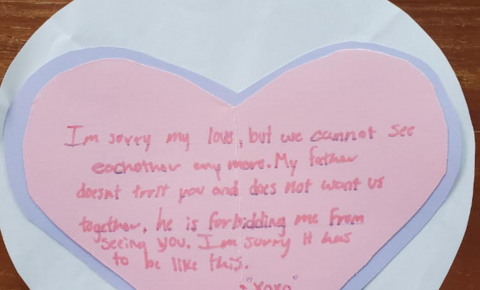 Im sorry my love, but we cannot see
eachother any more. My father
doesnt trust you and does not want us
together, he is forbidding me from
seeing you. I'm sorry it has
to be like this.
"xoxo"